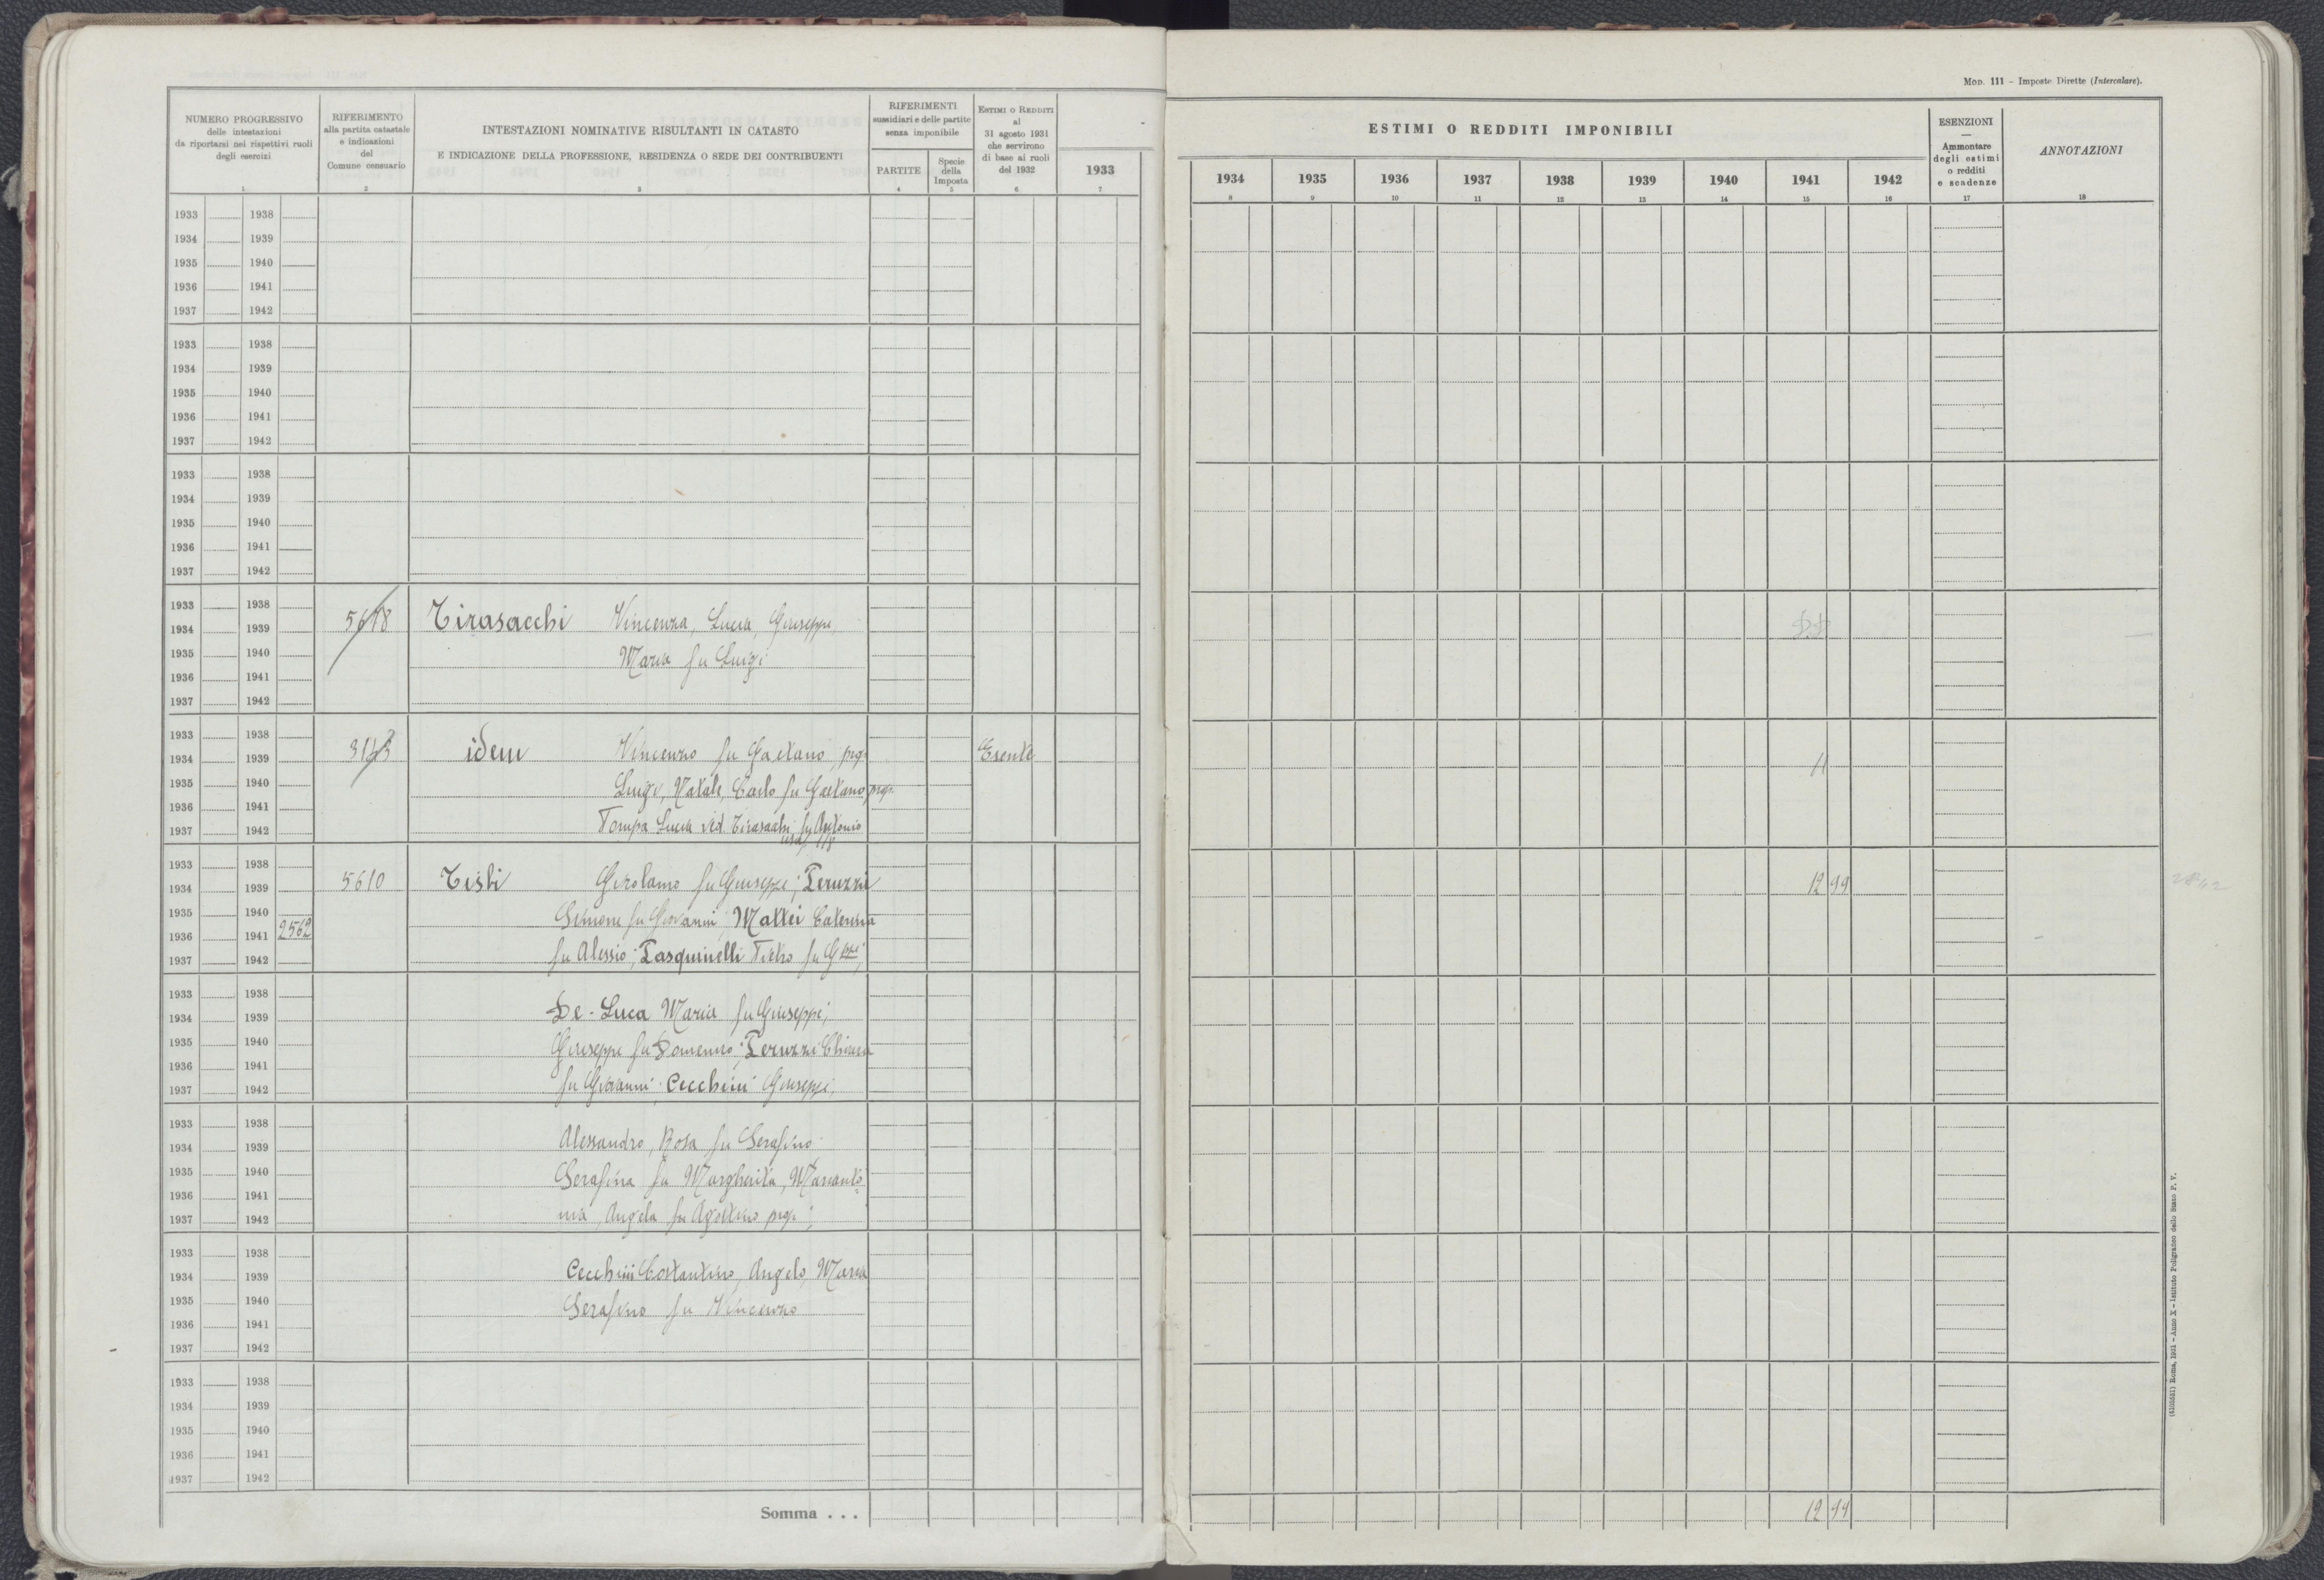 Mod. 111 – Imposte Dirette (Intercalare).
NUMERO PROGRESSIVO
delle intestazioni
da riportarsi nei rispettivi ruoli
degli esercizi
1
RIFERIMENTO
alla partita catastale
e indicazioni
del
Comune censuario
2
INTESTAZIONI NOMINATIVE RISULTANTI IN CATASTO
E INDICAZIONE DELLA PROFESSIONE, RESIDENZA O SEDE DEI CONTRIBUENTI
3
RIFERIMENTI
sussidiari e delle partite
senza imponibile
PARTITE
4
Specie
della
Imposta
5
Estimi o Redditi
al
31 agosto 1931
che servirono
di base ai ruoli
del 1932
6
1933
7
ESTIMI O REDDITI IMPONIBILI
1934 1935 1936 1937 1938 1939 1940 1941 1942
8 9 10 11 12 13 14 15 16
ESENZIONI
—
Ammontare
degli estimi
o redditi
e scadenze
17
ANNOTAZIONI
18
1933 1938
1934 1939
1935 1940
1936 1941
1937 1942
1933 1938
1934 1939
1935 1940
1936 1941
1937 1942
1933 1938
1934 1939
1935 1940
1936 1941
1937 1942
1933 1938
1934 1939 5618 Tirasacchi Vincenza, Lucia, Giuseppe,
1935 1940 Maria fu Luigi
1936 1941
1937 1942
1933 1938
1934 1939 3143 idem Vincenzo fu Gaetano, prop. Esente 11
1935 1940 Luigi, Natale, Carlo fu Gaetano prop.
1936 1941
1937 1942 Pompa Lucia ved. Tirasacchi fu Antonio
1933 1938
1934 1939 5610 Tisbi Girolamo fu Giuseppe; Peruzzi 12 99
1935 1940 Simone fu Giovanni; Mattei Caterina
1936 1941 2562
1937 1942 fu Alessio; Pasquinelli Pietro fu Gppe;
1933 1938
1934 1939 De-Luca Maria fu Giuseppe;
1935 1940 Giuseppe fu Domenico; Peruzzi Chiara
1936 1941
1937 1942 fu Giovanni; Cecchini Giuseppe,
1933 1938
1934 1939 Alessandro, Rosa fu Serafino,
1935 1940 Serafina fu Margherita, Mariantò
1936 1941
1937 1942 nia, Angela fu Agostino prop.;
1933 1938
1934 1939 Cecchini Costantino, Angelo, Maria
1935 1940 Serafino fu Vincenzo
1936 1941
1937 1942
1933 1938
1934 1939
1935 1940
1936 1941
1937 1942
Somma . . . 12 99
Roma, 1931 – Anno X – Istituto Poligrafico dello Stato P. V.